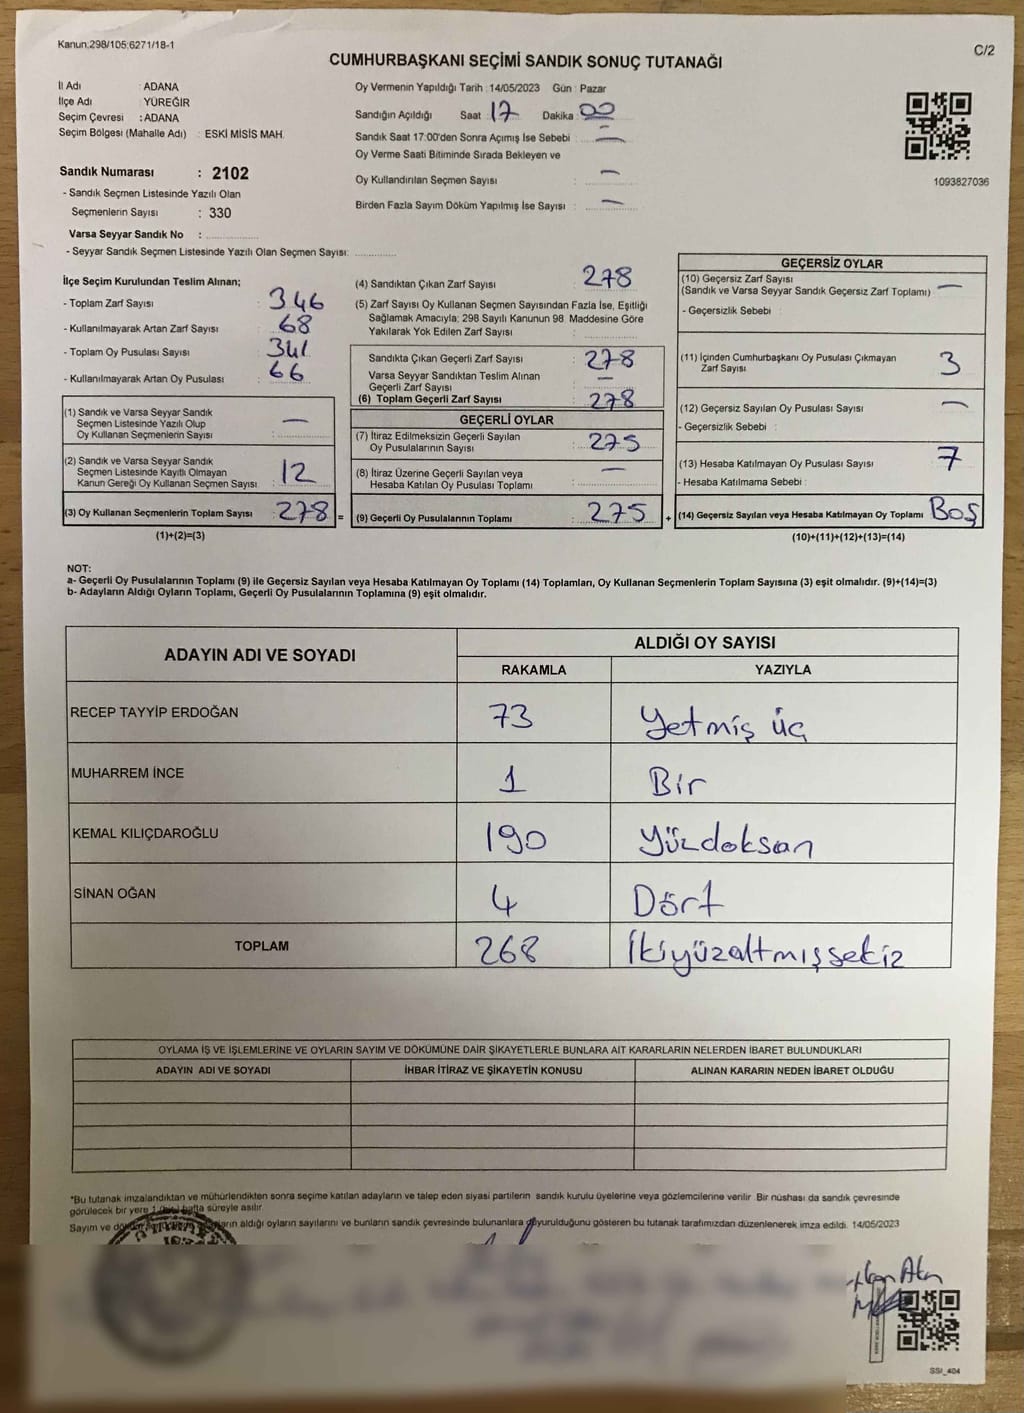 Kanun:298/105;6271/18-1
C/2
CUMHURBAŞKANI SEÇİMİ SANDIK SONUÇ TUTANAĞI
İl Adı : ADANA
İlçe Adı : YÜREĞİR
Seçim Çevresi : ADANA
Seçim Bölgesi (Mahalle Adı) : ESKİ MİSİS MAH.
Sandık Numarası : 2102
- Sandık Seçmen Listesinde Yazılı Olan
Seçmenlerin Sayısı : 330
Varsa Seyyar Sandık No :
- Seyyar Sandık Seçmen Listesinde Yazılı Olan Seçmen Sayısı:
Oy Vermenin Yapıldığı Tarih : 14/05/2023 Gün : Pazar
Sandığın Açıldığı Saat : 17 Dakika : 00
Sandık Saat 17:00'den Sonra Açımış İse Sebebi : —
Oy Verme Saati Bitiminde Sırada Bekleyen ve
Oy Kullandırılan Seçmen Sayısı : —
Birden Fazla Sayım Döküm Yapılmış İse Sayısı : —
1093827036
İlçe Seçim Kurulundan Teslim Alınan;
- Toplam Zarf Sayısı : 346
- Kullanılmayarak Artan Zarf Sayısı : 68
- Toplam Oy Pusulası Sayısı : 341
- Kullanılmayarak Artan Oy Pusulası : 66
(1) Sandık ve Varsa Seyyar Sandık
Seçmen Listesinde Yazılı Olup
Oy Kullanan Seçmenlerin Sayısı : —
(2) Sandık ve Varsa Seyyar Sandık
Seçmen Listesinde Kayıtlı Olmayan
Kanun Gereği Oy Kullanan Seçmen Sayısı : 12
(3) Oy Kullanan Seçmenlerin Toplam Sayısı : 278 =
(1)+(2)=(3)
(4) Sandıktan Çıkan Zarf Sayısı : 278
(5) Zarf Sayısı Oy Kullanan Seçmen Sayısından Fazla İse, Eşitliği
Sağlamak Amacıyla; 298 Sayılı Kanunun 98. Maddesine Göre
Yakılarak Yok Edilen Zarf Sayısı :
Sandıkta Çıkan Geçerli Zarf Sayısı : 278
Varsa Seyyar Sandıktan Teslim Alınan
Geçerli Zarf Sayısı : —
(6) Toplam Geçerli Zarf Sayısı : 278
GEÇERLİ OYLAR
(7) İtiraz Edilmeksizin Geçerli Sayılan
Oy Pusulalarının Sayısı : 275
(8) İtiraz Üzerine Geçerli Sayılan veya
Hesaba Katılan Oy Pusulası Toplamı : —
(9) Geçerli Oy Pusulalarının Toplamı : 275 +
GEÇERSİZ OYLAR
(10) Geçersiz Zarf Sayısı
(Sandık ve Varsa Seyyar Sandık Geçersiz Zarf Toplamı) : —
- Geçersizlik Sebebi :
(11) İçinden Cumhurbaşkanı Oy Pusulası Çıkmayan
Zarf Sayısı 3
(12) Geçersiz Sayılan Oy Pusulası Sayısı —
- Geçersizlik Sebebi :
(13) Hesaba Katılmayan Oy Pusulası Sayısı 7
- Hesaba Katılmama Sebebi :
(14) Geçersiz Sayılan veya Hesaba Katılmayan Oy Toplamı Boş
(10)+(11)+(12)+(13)=(14)
NOT:
a- Geçerli Oy Pusulalarının Toplamı (9) ile Geçersiz Sayılan veya Hesaba Katılmayan Oy Toplamı (14) Toplamları, Oy Kullanan Seçmenlerin Toplam Sayısına (3) eşit olmalıdır. (9)+(14)=(3)
b- Adayların Aldığı Oyların Toplamı, Geçerli Oy Pusulalarının Toplamına (9) eşit olmalıdır.
ADAYIN ADI VE SOYADI ALDIĞI OY SAYISI
RAKAMLA YAZIYLA
RECEP TAYYİP ERDOĞAN 73 Yetmiş üç
MUHARREM İNCE 1 Bir
KEMAL KILIÇDAROĞLU 190 Yüzdoksan
SİNAN OĞAN 4 Dört
TOPLAM 268 İkiyüzaltmışsekiz
OYLAMA İŞ VE İŞLEMLERİNE VE OYLARIN SAYIM VE DÖKÜMÜNE DAİR ŞİKAYETLERLE BUNLARA AİT KARARLARIN NELERDEN İBARET BULUNDUKLARI
ADAYIN ADI VE SOYADI İHBAR İTİRAZ VE ŞİKAYETİN KONUSU ALINAN KARARIN NEDEN İBARET OLDUĞU
*Bu tutanak imzalandıktan ve mühürlendikten sonra seçime katılan adayların ve talep eden siyasi partilerin sandık kurulu üyelerine veya gözlemcilerine verilir. Bir nüshası da sandık çevresinde
görülecek bir yere 1 hafta süreyle asılır.
Sayım ve aldığı oyların sayılarını ve bunların sandık çevresinde bulunanlara duyurulduğunu gösteren bu tutanak tarafımızdan düzenlenerek imza edildi. 14/05/2023
SSI_404